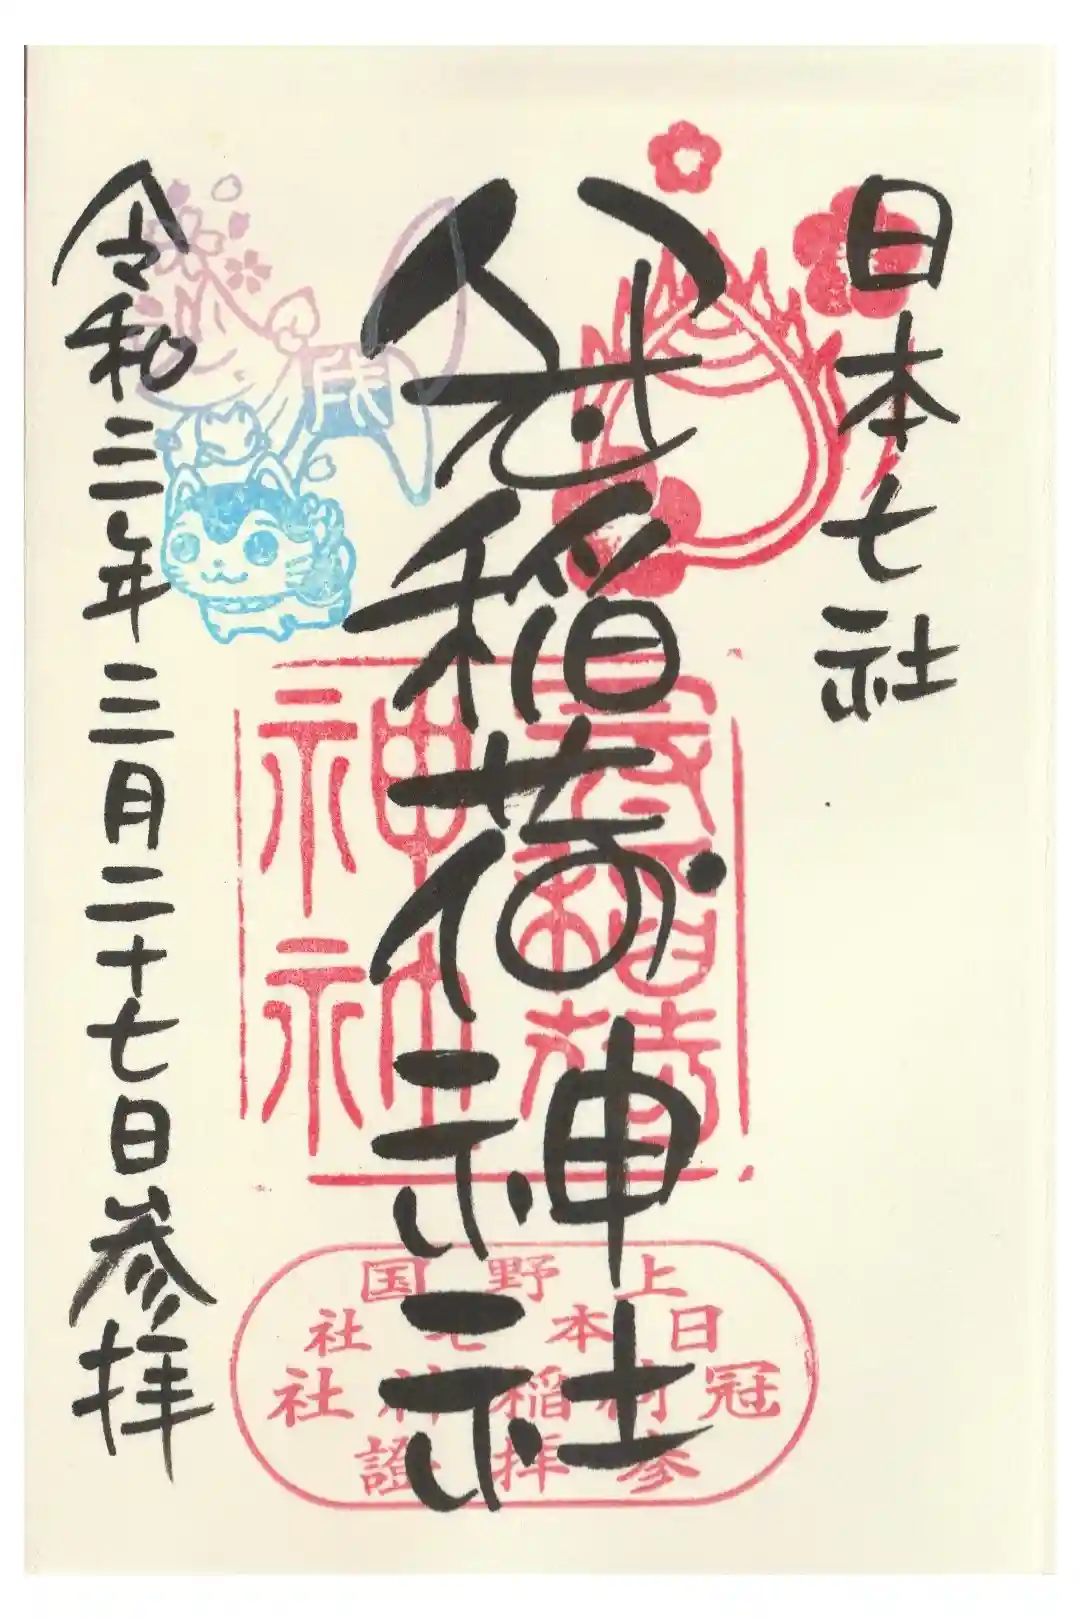 日本七社
冠稲荷神社
令和三年三月二十七日参拝
戌
冠稲荷
神社
上野国
日本七社
冠稲神社
参拝證